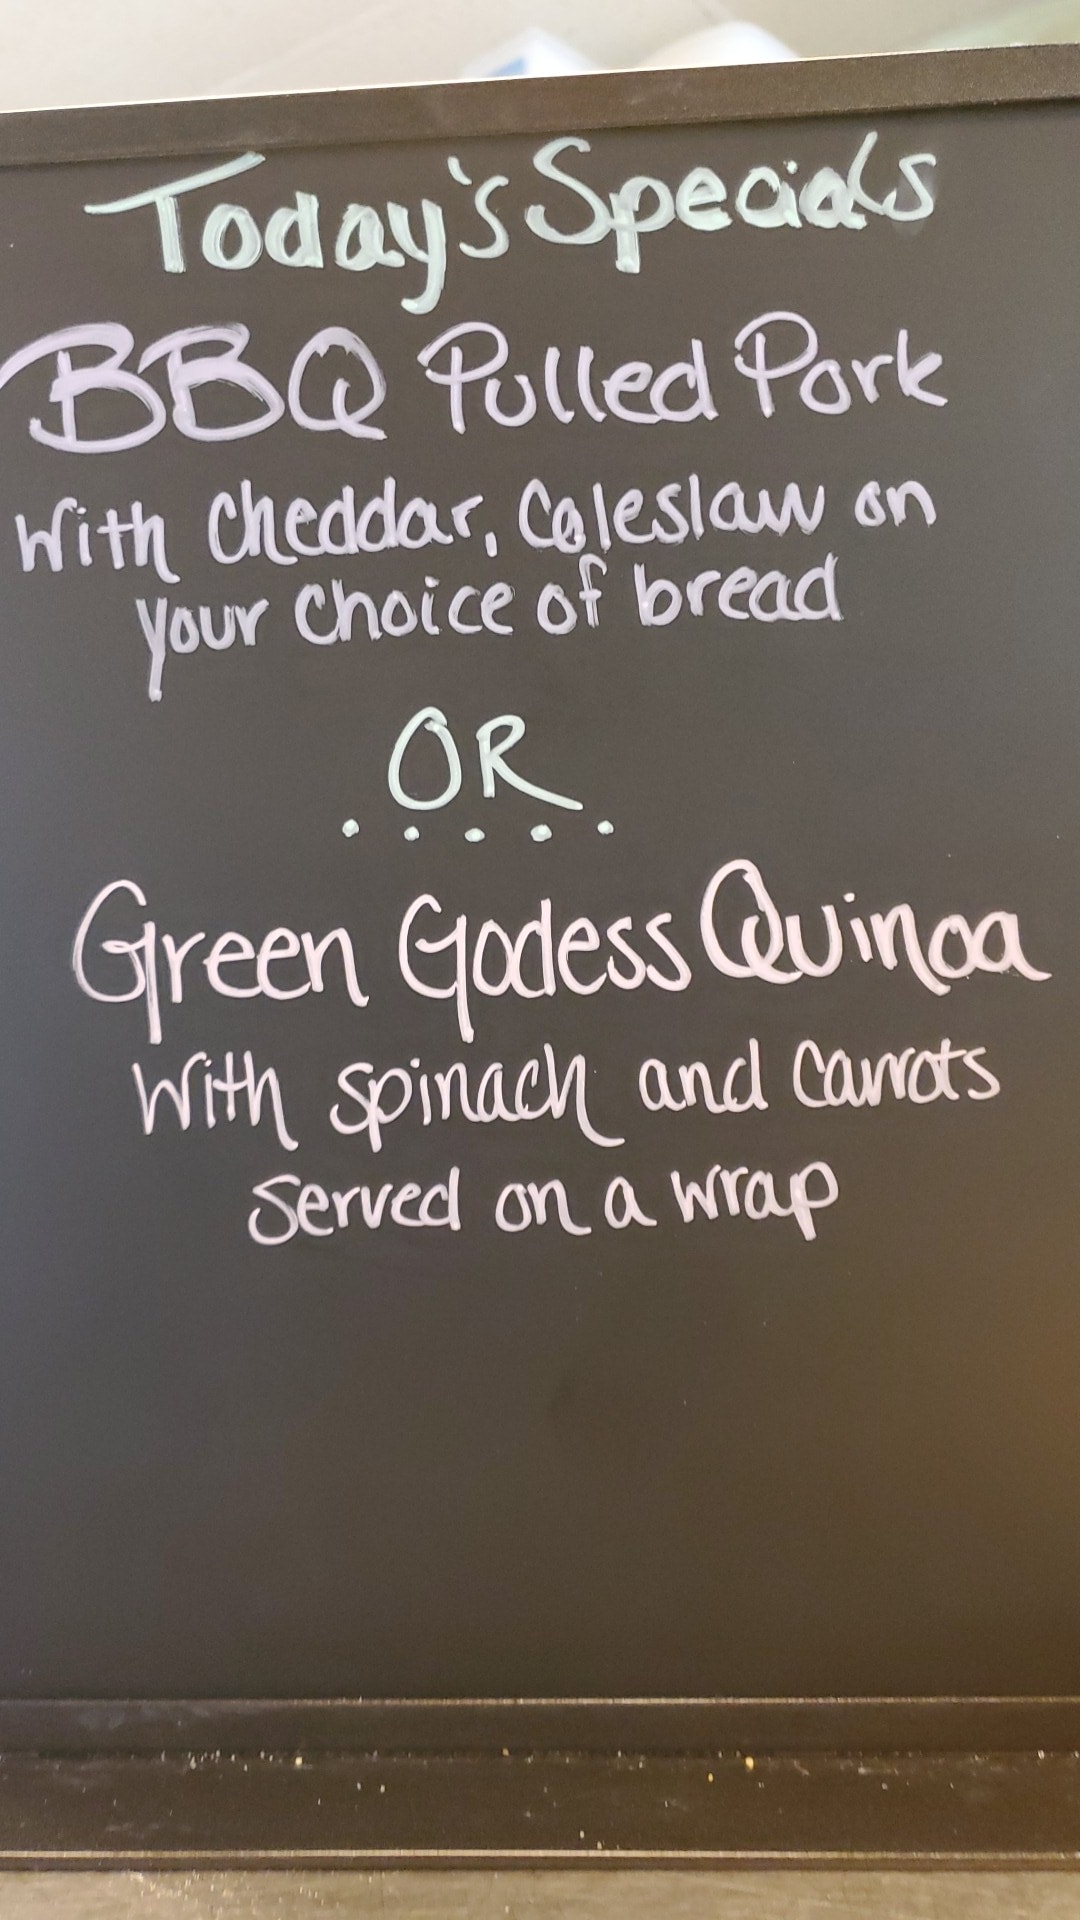 Today's Specials
BBQ Pulled Pork
With Cheddar, Coleslaw on
your choice of bread
OR
.....
Green Godess Quinoa
With spinach and carrots
served on a wrap